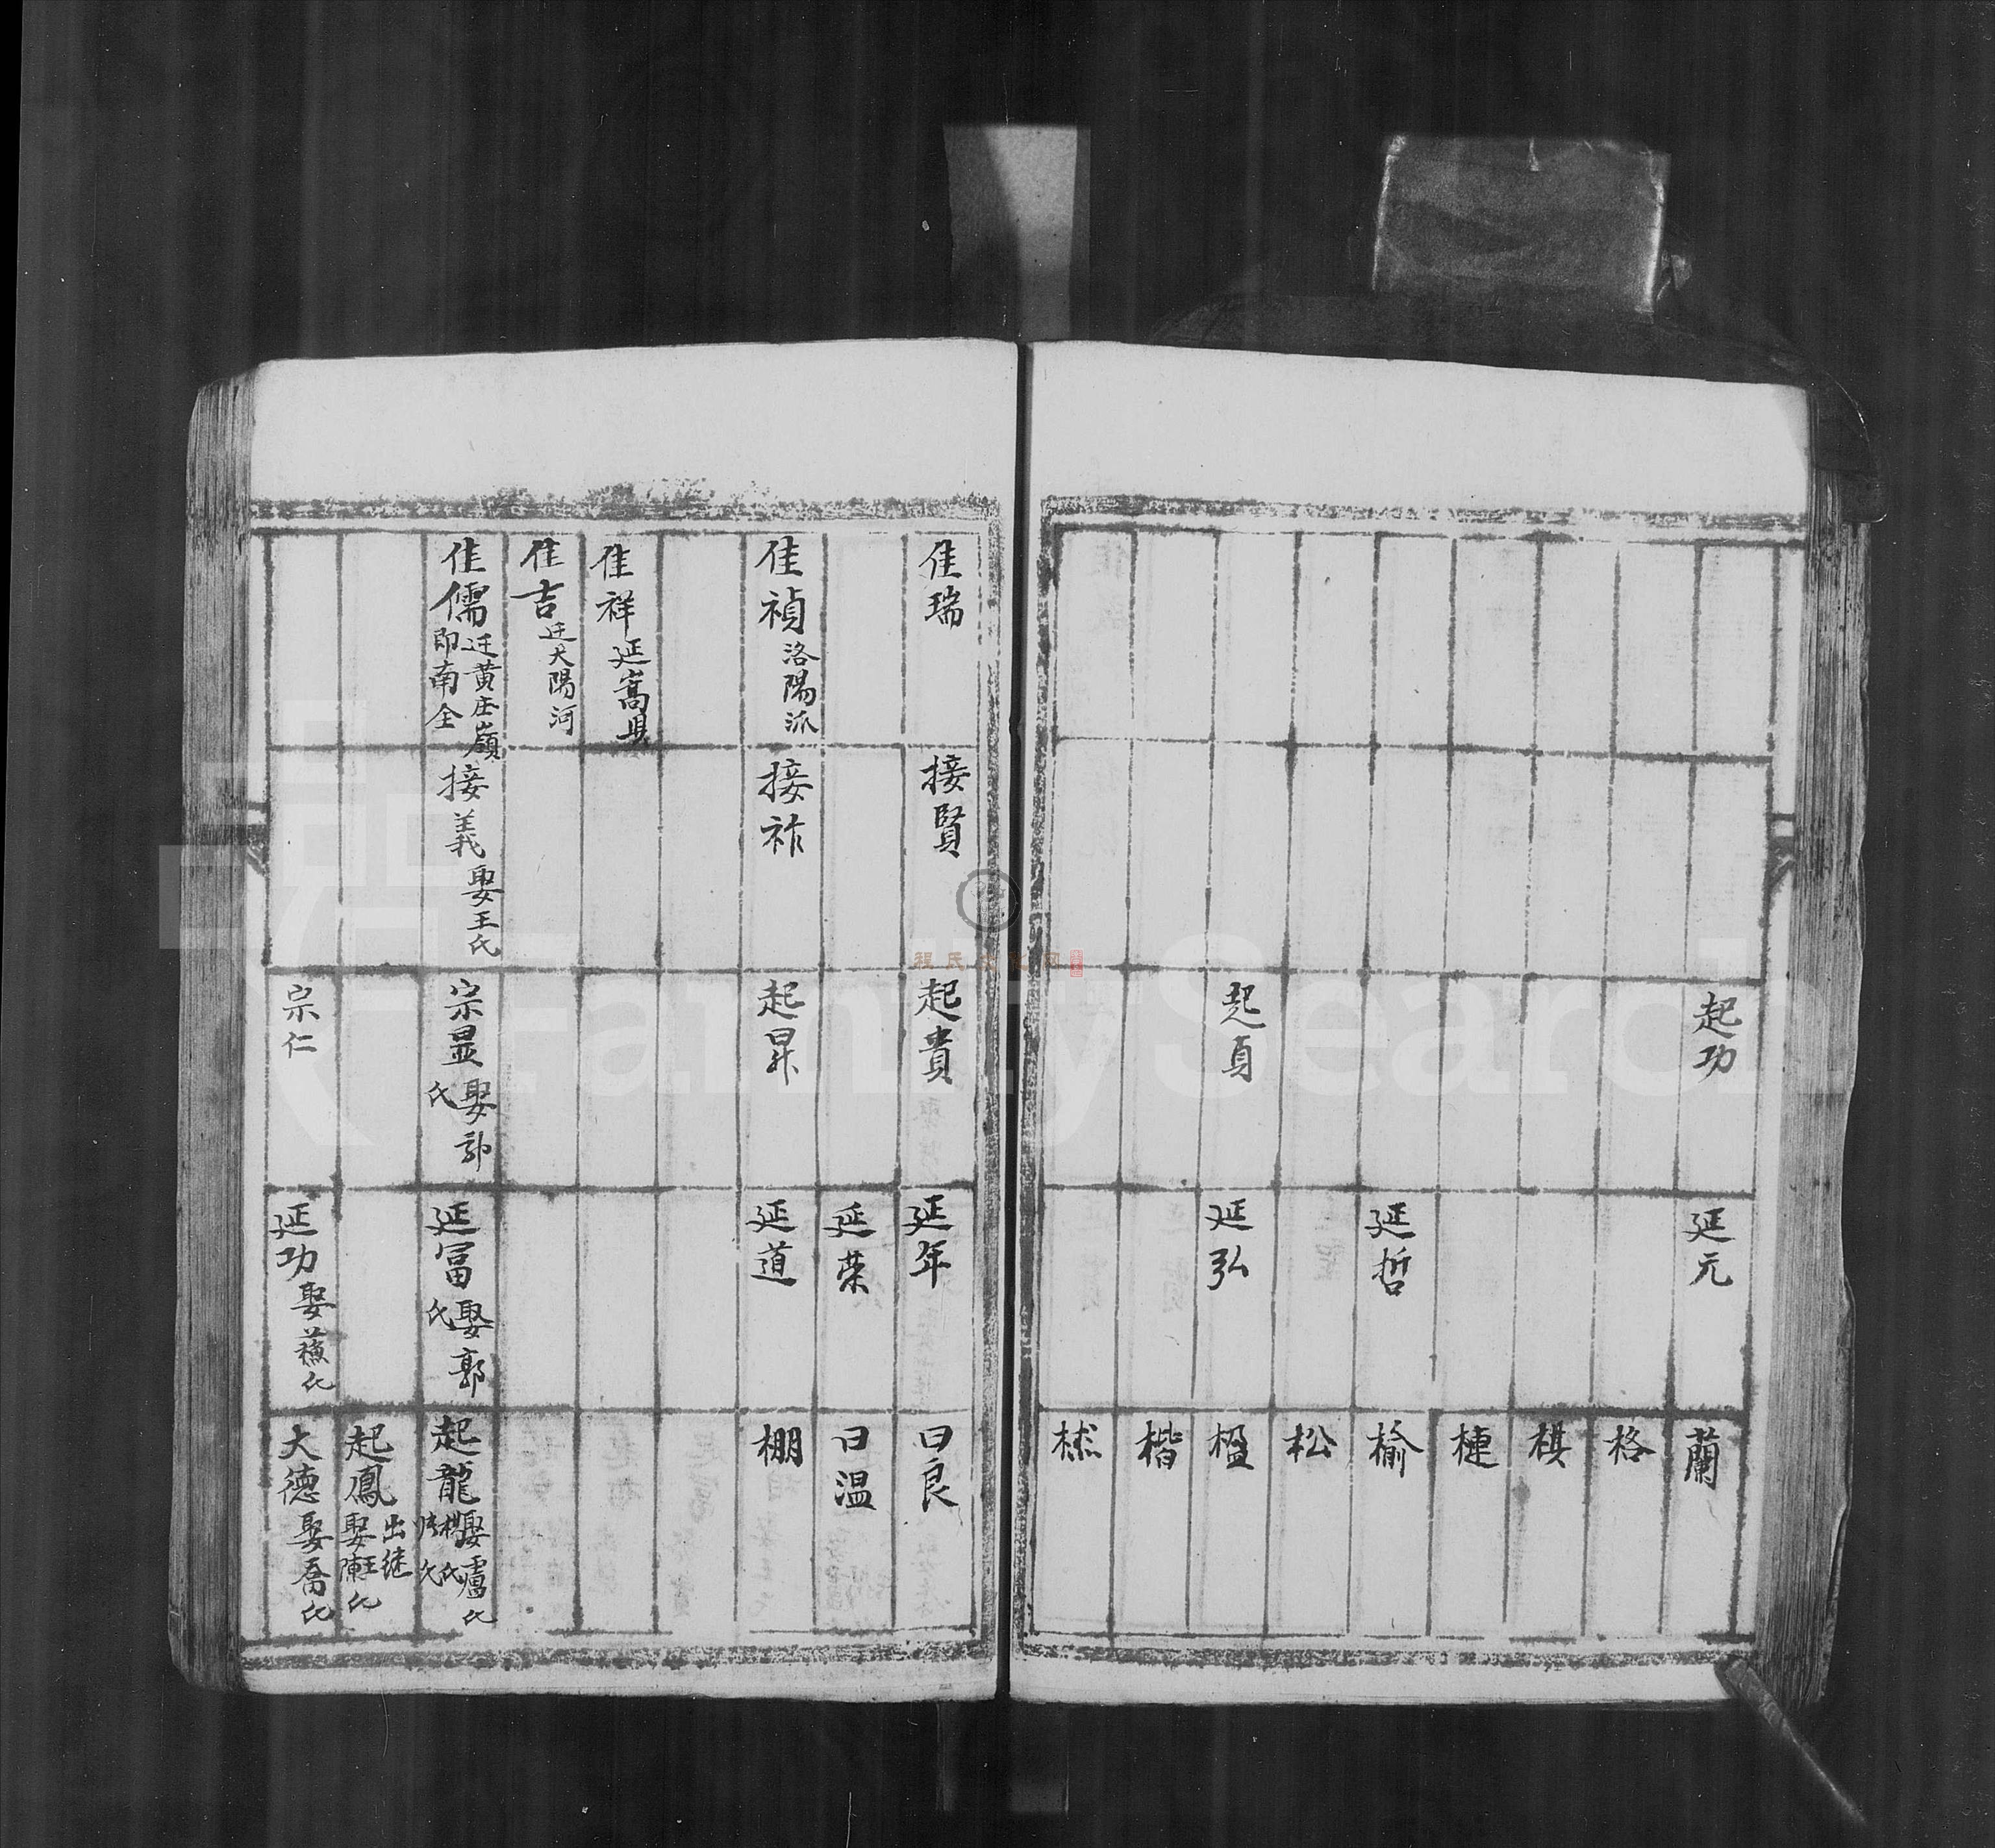 起功
延元
蘭
格
棋
槤
延哲
榆
松
起貞
延弘
楹
楷
佳瑞
接賢
起貴
延年
曰良
延荣
曰温
佳禎 洛陽派
接祚
起昇
延道
棚
佳祥 迋嵩县
佳吉 迋大陽河
佳儒 迋黄庄嶺
即南仝
接義 娶王氏
宗显 娶郭
氏
延冨 娶郭
氏
起龍 娶盧氏
起鳳 出继
娶陳王氏
宗仁
延功 娶蘇氏
大德 娶喬氏
程氏文化网
FamilySearch